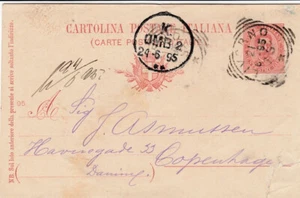 CARTOLINA POSTALE ITALIANA
(CARTE POSTALE
K.
OMB. 2
24-6-95
95
A Sig
J. Asmussen
Havnegade 33
Copenhagen
NB. Sul lato anteriore della presente si scrive soltanto l'indirizzo.